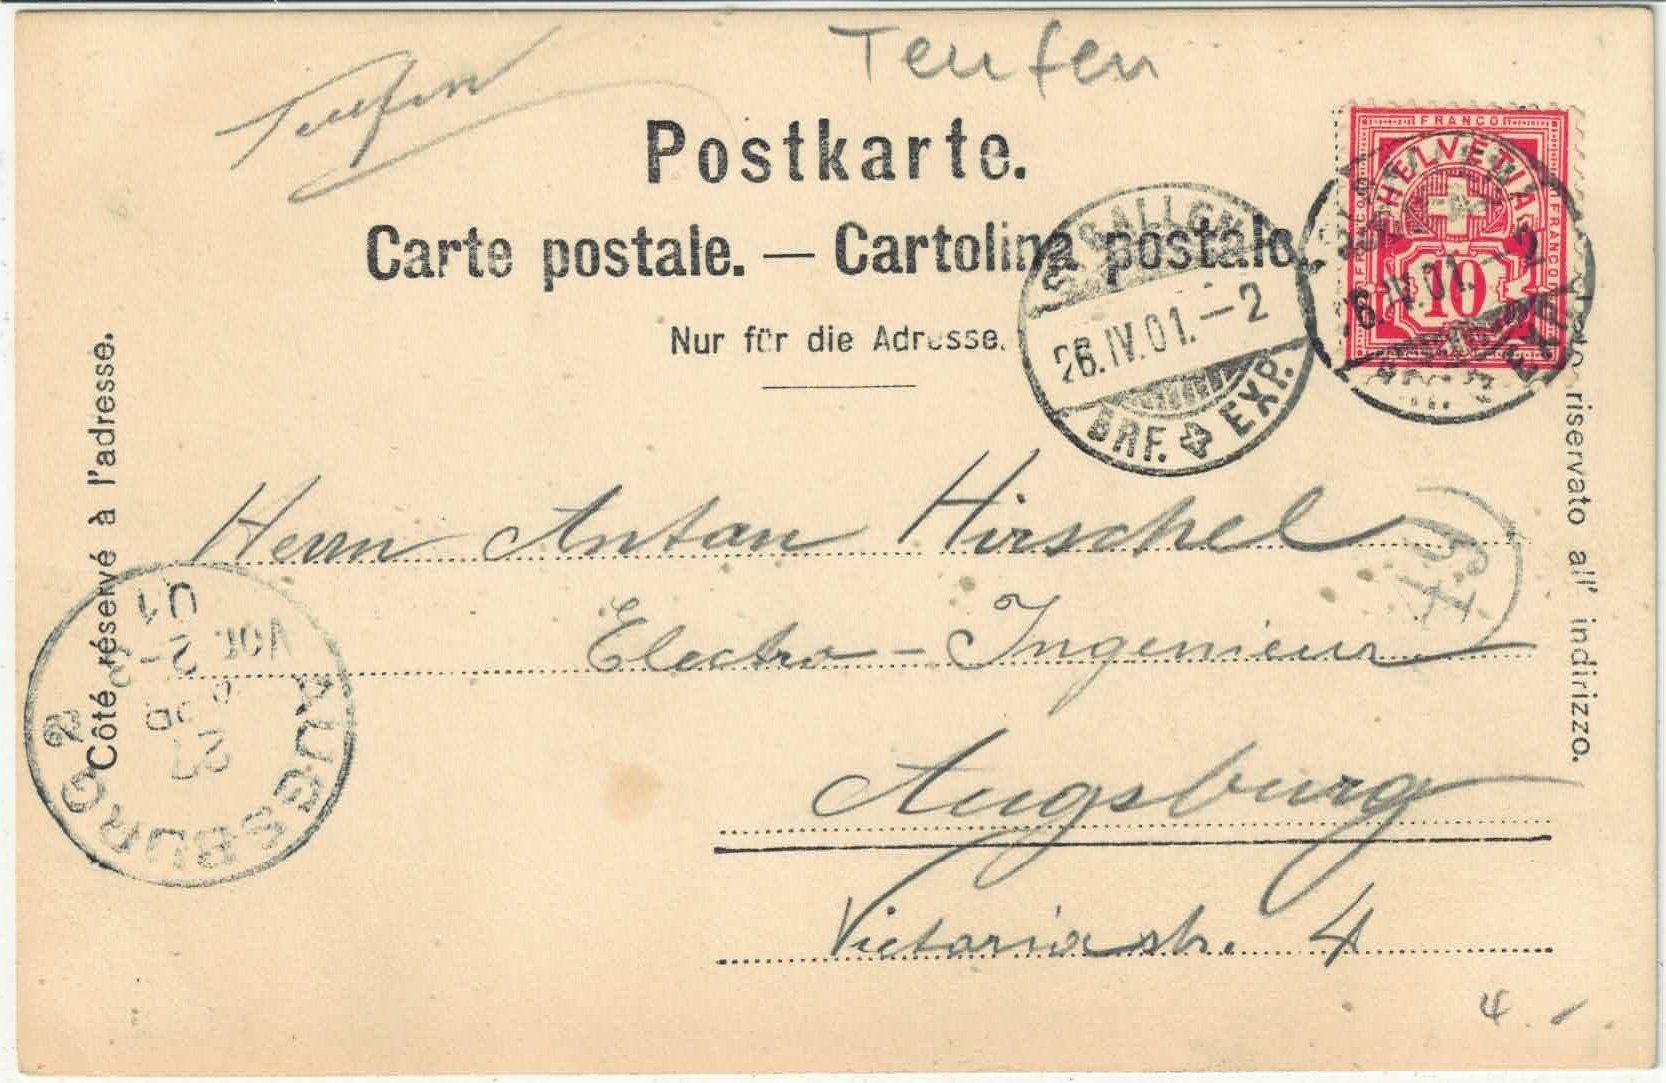 Teufen
Teufen
Postkarte.
Carte postale. — Cartolina postale.
Nur für die Adresse.
Côté réservé à l'adresse.
riservato all' indirizzo.
FRANCO
HELVETIA
FRANCO
FRANCO
10
ST. GALLEN
26.IV.01.–2
BRF. EXP.
26.IV.01.–2
EXP.
Herrn Anton Hirschel
Electro-Ingenieur
Augsburg
Victoriastr. 4
AUGSBURG 2
27
VOR
01
4.